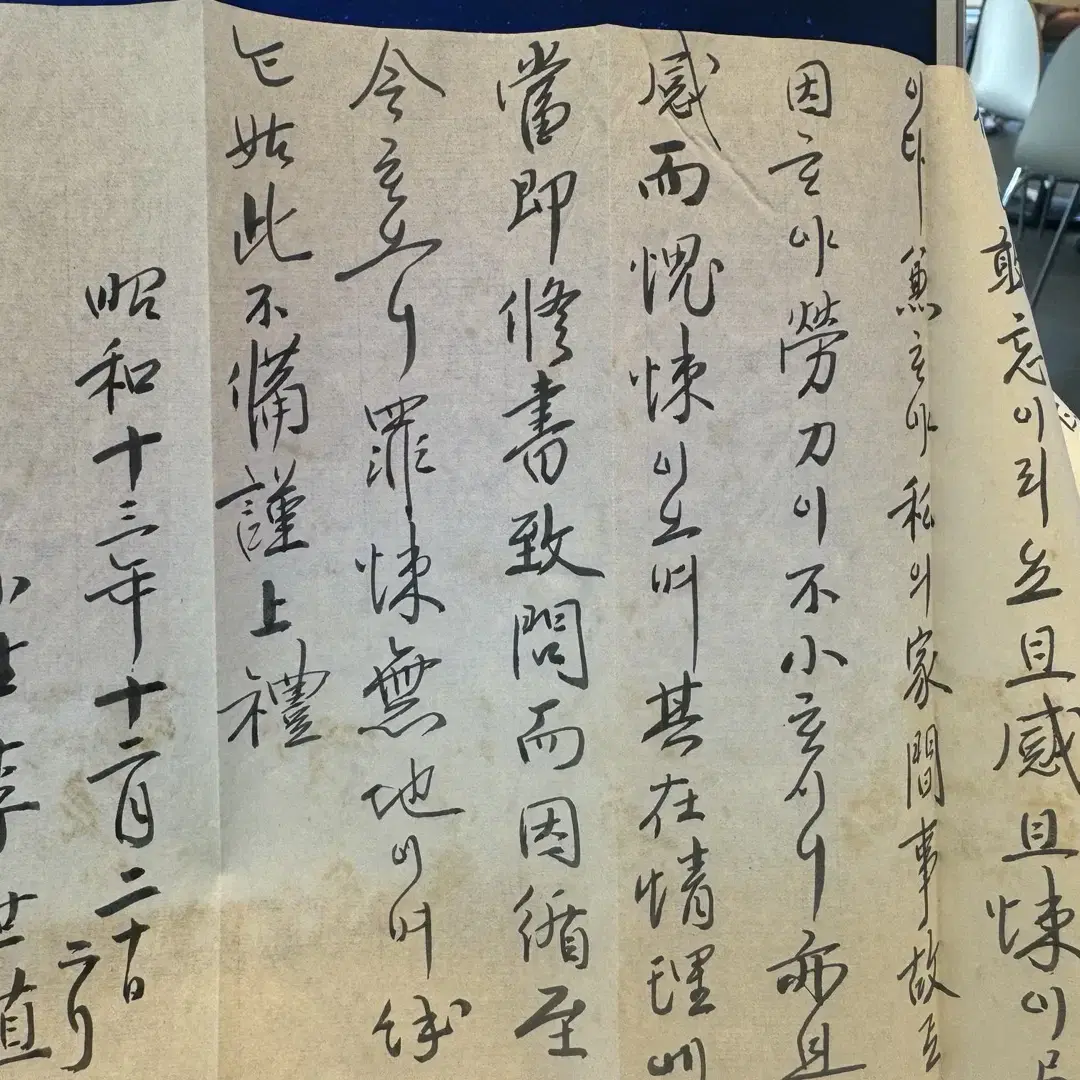 敢忘이리오且感且悚이
이다兼호야私의家間事故로
因호야勞力이不小호시니亦且
感而愧悚이오며其在情理에
當即修書致問而因循至
今호오니罪悚無地이며伏
乞姑此不備謹上禮
昭和十三年十二月二十日